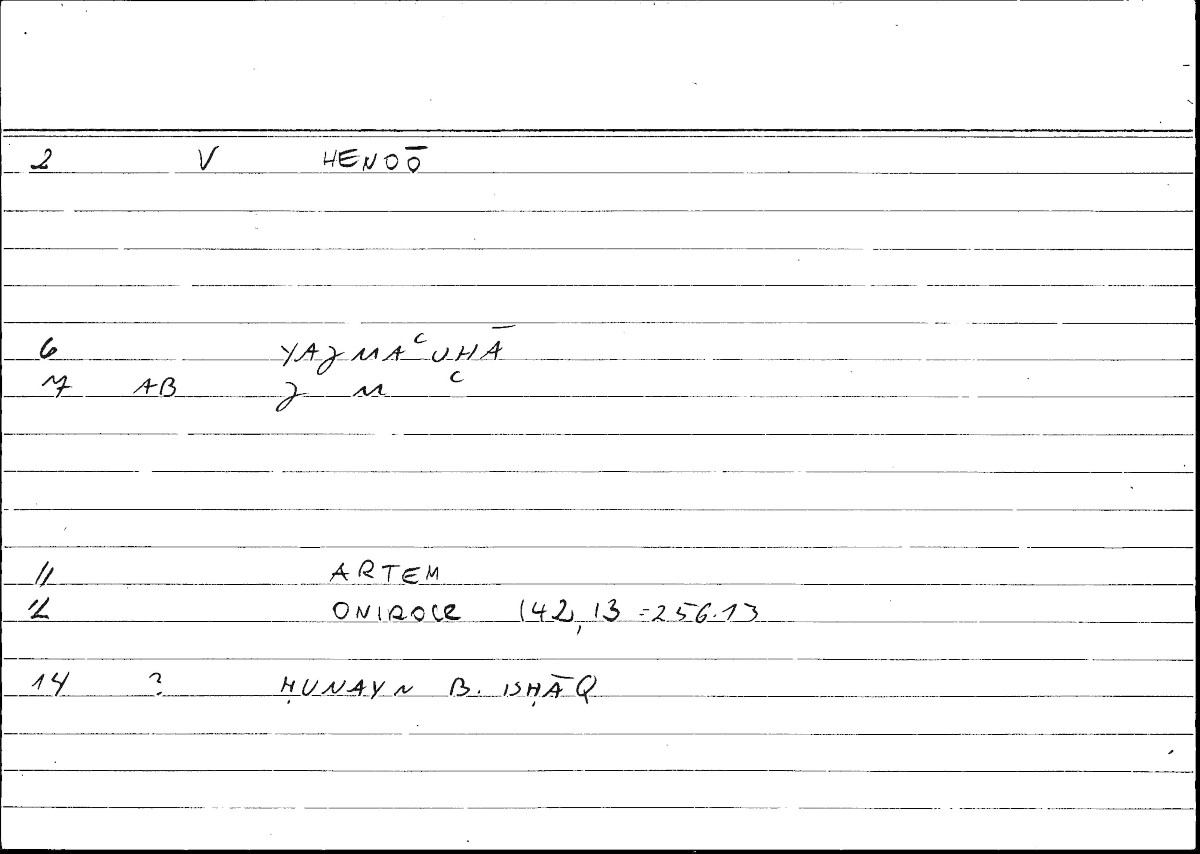 2 V HENOŌ
6 YAJMAʿUHĀ
7 AB J M ʿ
11 ARTEM
12 ONIROCR 142,13 =256.13
14 ? ḤUNAYN B. ISḤĀQ